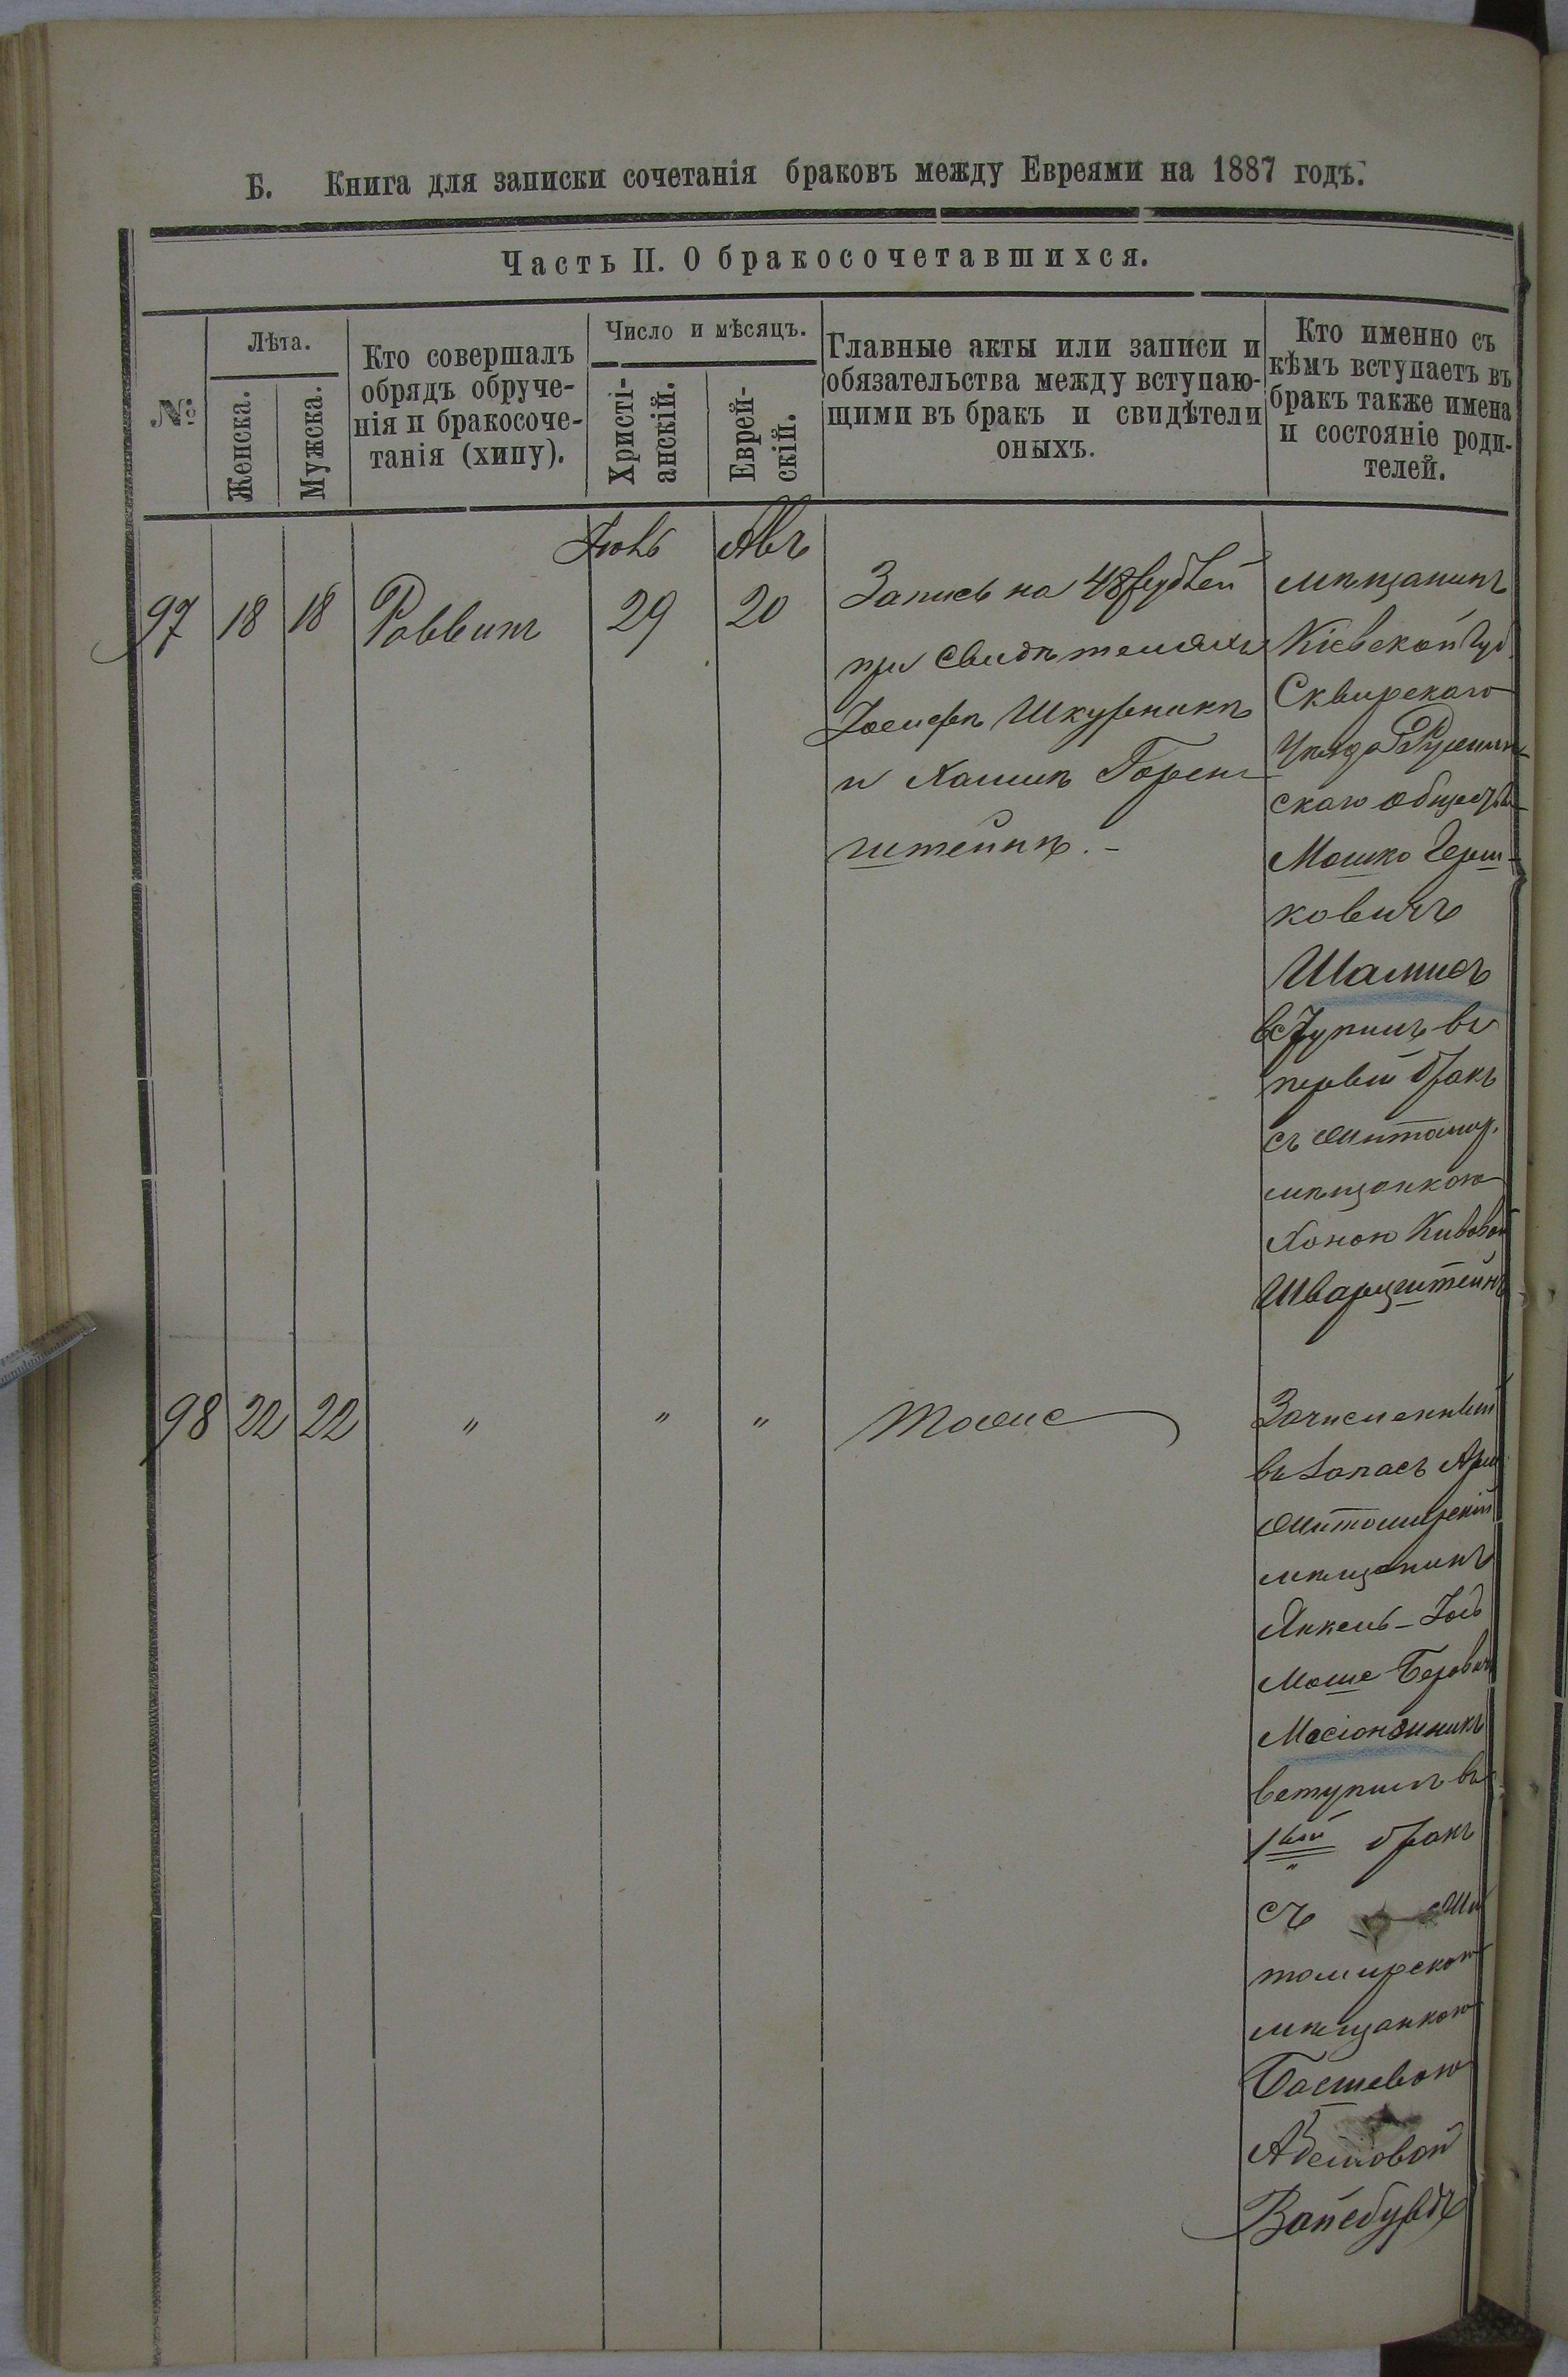 Б. Книга для записки сочетанія браковъ между Евреями на 1887 годъ.
Часть II. О бракосочетавшихся.
№
Лѣта.
Женска.
Мужска.
Кто совершалъ
обрядъ обруче-
нія и бракосоче-
танія (хипу).
Число и мѣсяцъ.
Христі-
анскій.
Еврей-
скій.
Главные акты или записи и
обязательства между вступаю-
щими въ бракъ и свидѣтели
оныхъ.
Кто именно съ
кѣмъ вступаетъ въ
бракъ также имена
и состояніе роди-
телей.
Авъ
97 18 18 Раввинъ 29 20
Запись на 48 рублей
при свидѣтеляхъ
Іосифѣ Шкурникѣ
и Хаимѣ Горен-
штейнѣ.-
мѣщанинъ
Кіевской Губ.
Сквирскаго
Уѣзда
скаго общества
Мошко Герш-
ковичъ
Шамисъ
вступилъ въ
первый бракъ
съ Житомир.
мѣщанкою
Ханою Кивовой
Шварцштейнъ
98 22 22 " " " Тоже
Зачисленный
въ запасъ Арм.
Житомирскій
мѣщанинъ
Янкель-Іось
Моше Беровичъ
вступилъ въ
1вый бракъ
съ Жи
томирскою
мѣщанкою
Басшевою
Вайсбурдъ